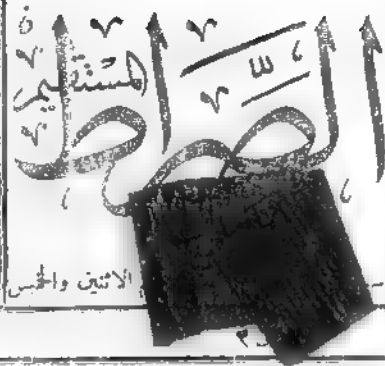 الصراط
المستقيم
الاثنين والخميس